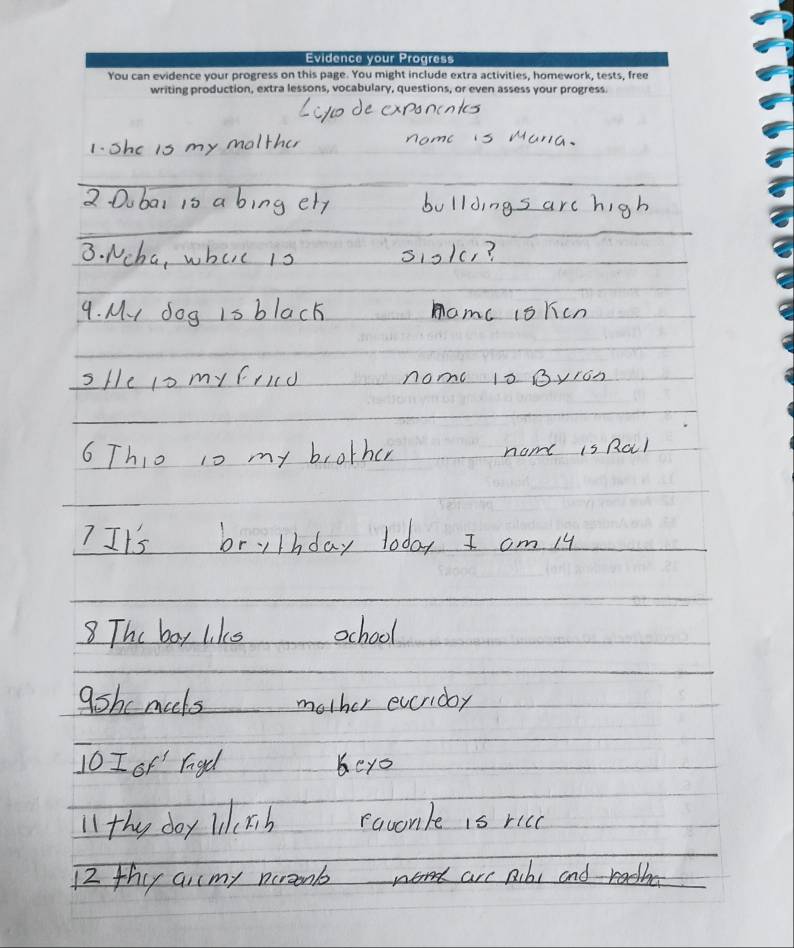 Evidence your Progress
You can evidence your progress on this page. You might include extra activities, homework, tests, free
writing production, extra lessons, vocabulary, questions, or even assess your progress.
de
1. She is my malther name is Maria.
2 Dubai is a bing buildings are high
3. Neha, where is sister?
4. My dog is black name is Ken
5 He is my name is Byron
6 This is my brother name is
7 It's brythday today I am 14
8 The boy likes school
9 She meets mother everiday
10 I keys
11 thy is rice
12 thy my are and